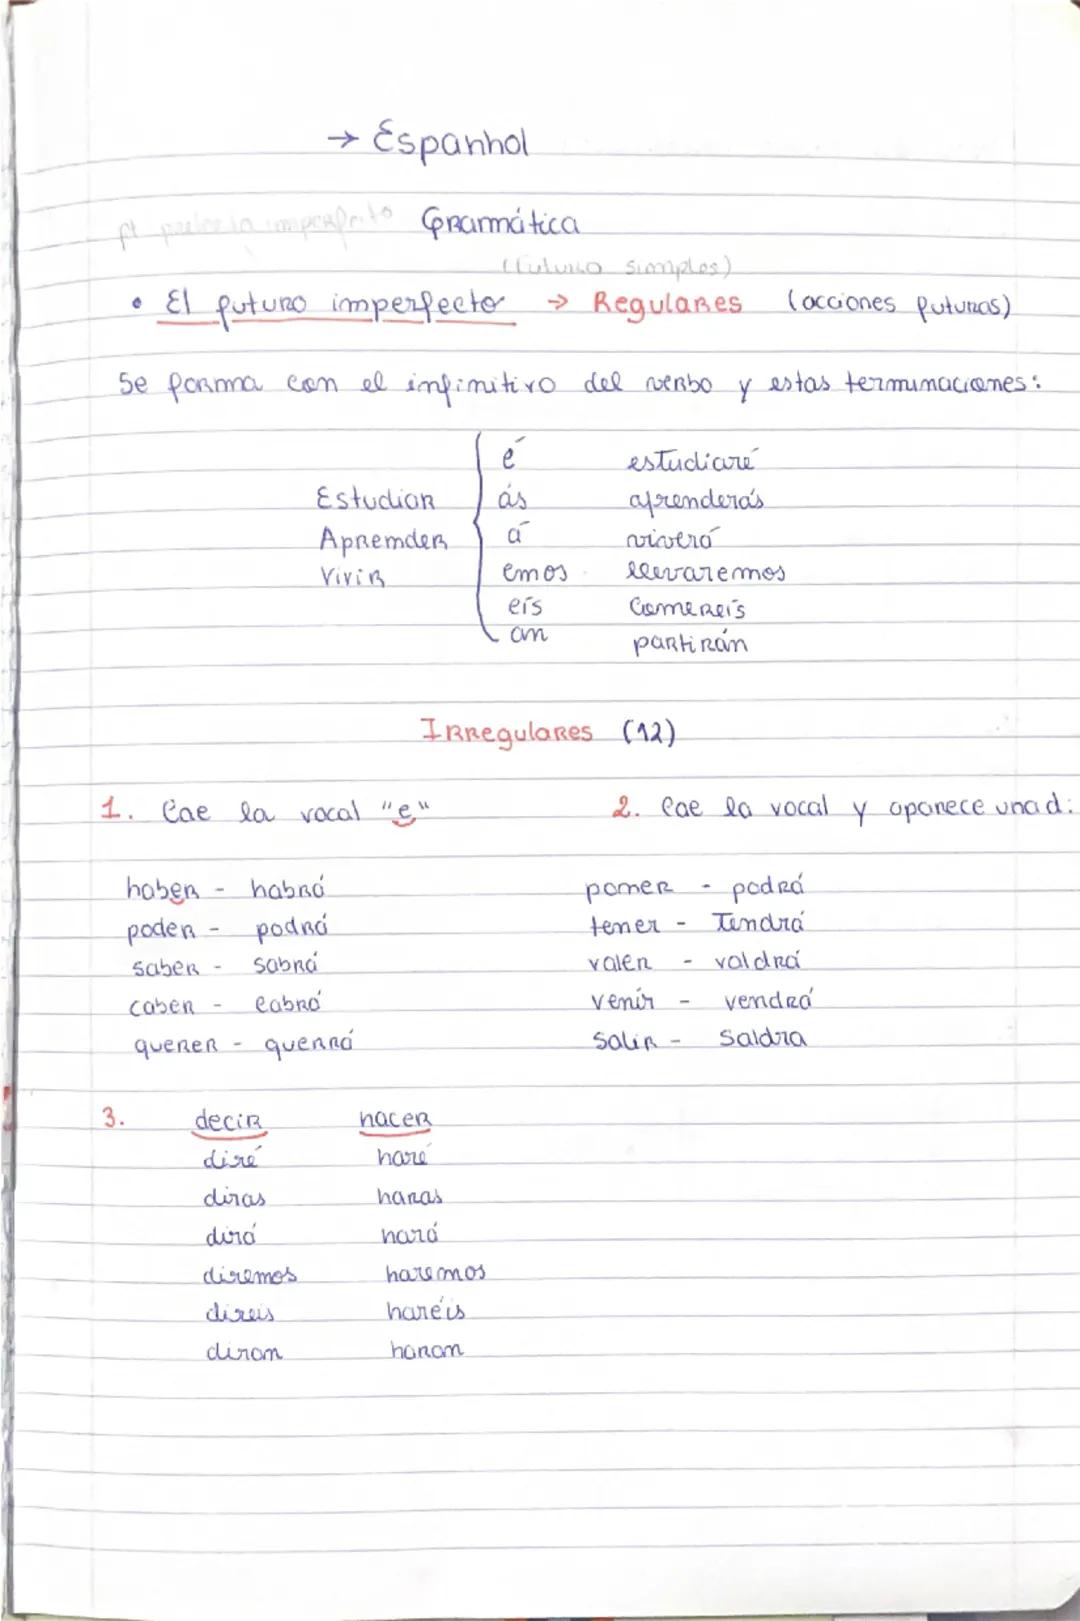 → Espanhol
imperfeito Gramática
(futuro simples)
• El futuro imperfecto → Regulares (acciones futuras)
Se forma con el infinitivo del verbo y estas terminaciones:
é estudiaré
Estudiar ás aprenderás
Aprender á viverá
Vivir emos llevaremos
eís Comereís
an partirán
Irregulares (12)
1. Cae la vocal "e" 2. Cae la vocal y aparece una d:
haber - habrá poner - podrá
poder - podrá tener - Tendrá
saber - sabrá valer - valdrá
caber - cabrá venir - vendrá
querer - querrá salir - Saldra
3. decir hacer
diré haré
diras haras
dirá hará
diremos haremos
direis haréis
diran haran